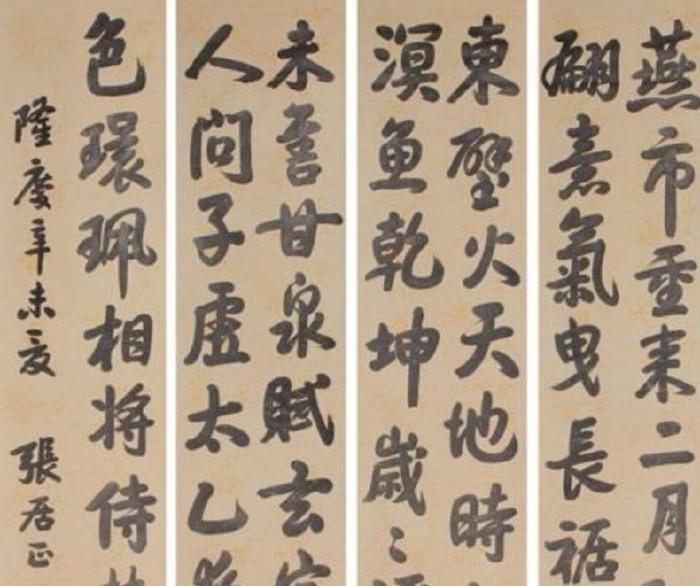 燕市重来二月
翩意氣曳長裾
東壁火天地時
溟魚乾坤歲〻
未售甘泉賦玄
人問子虛太乙
色環珮相將侍
隆慶辛未夏 張居正